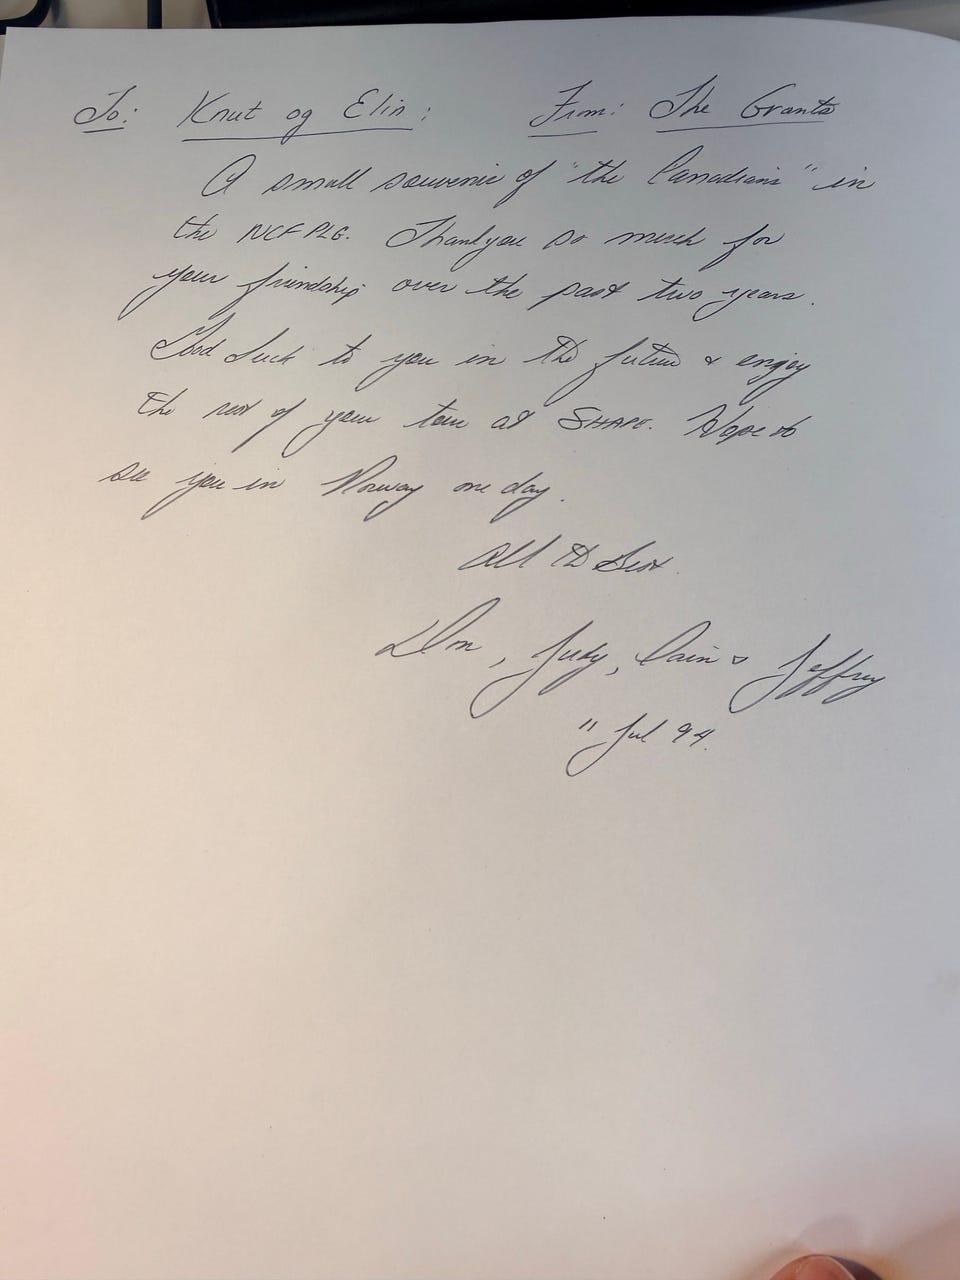 To: Knut og Elin: From: The Grants
A small souvenir of "the Canadians" in
the NCF PLG. Thankyou so much for
your friendship over the past two years.
Good luck to you in the future & enjoy
the rest of your tour at SHAPE. Hope to
see you in Norway one day.
All the Best
Don, Judy, Iain & Jeffrey
Jul 94.